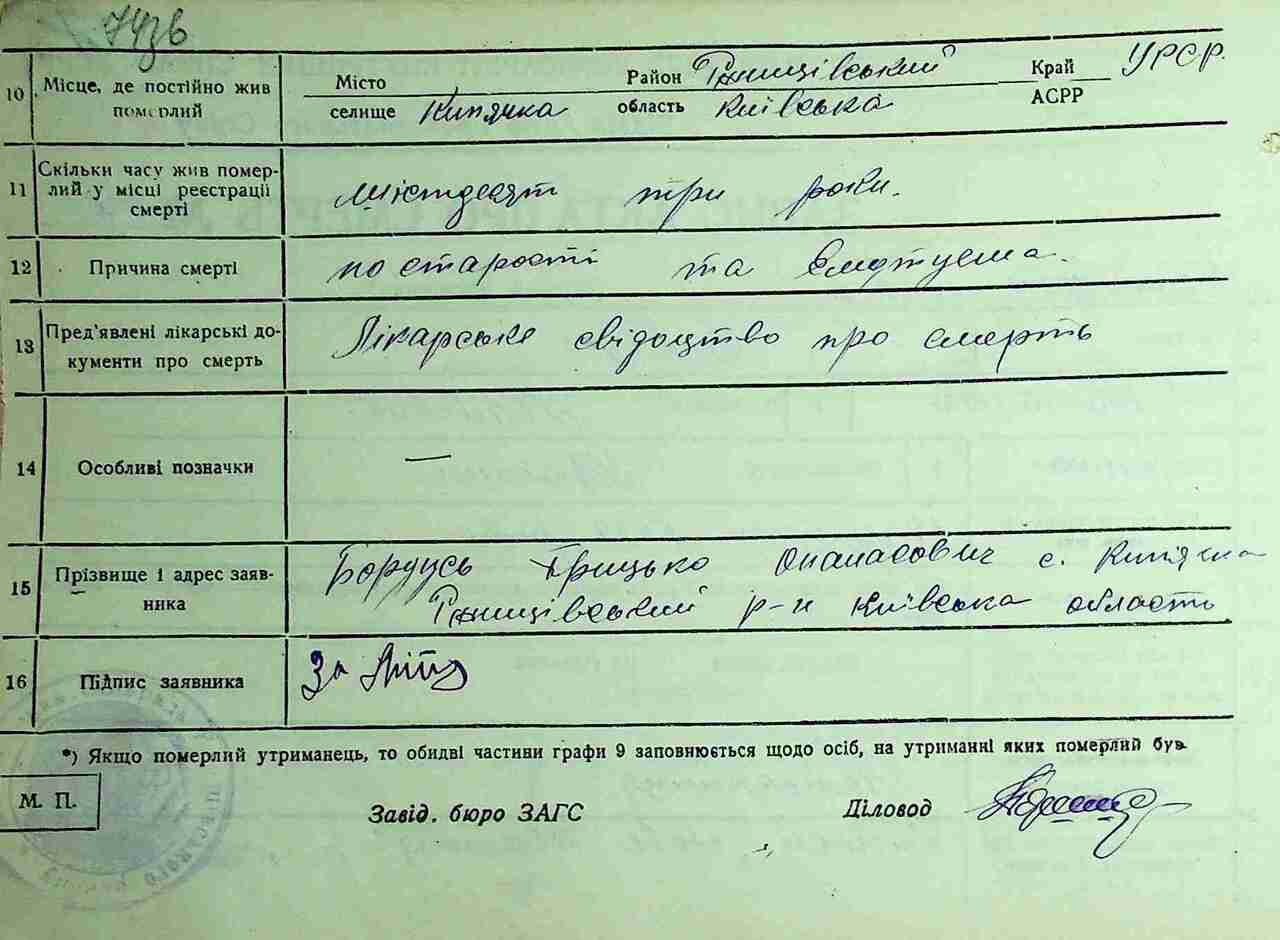 10 Місце, де постійно жив померлий Місто селище Кипячка Район область Київська Край АСРР УРСР.
11 Скільки часу жив померлий у місці реєстрації смерті шістдесят три роки.
12 Причина смерті по старості та
13 Пред'явлені лікарські документи про смерть Лікарське свідоцтво про смерть
14 Особливі позначки —
15 Прізвище і адрес заявника Грицько Опанасович с. Кипячка
р-н Київська область
16 Підпис заявника За
*) Якщо померлий утриманець, то обидві частини графи 9 заповнюється щодо осіб, на утриманні яких померлий був.
М. П. Завід. бюро ЗАГС Діловод